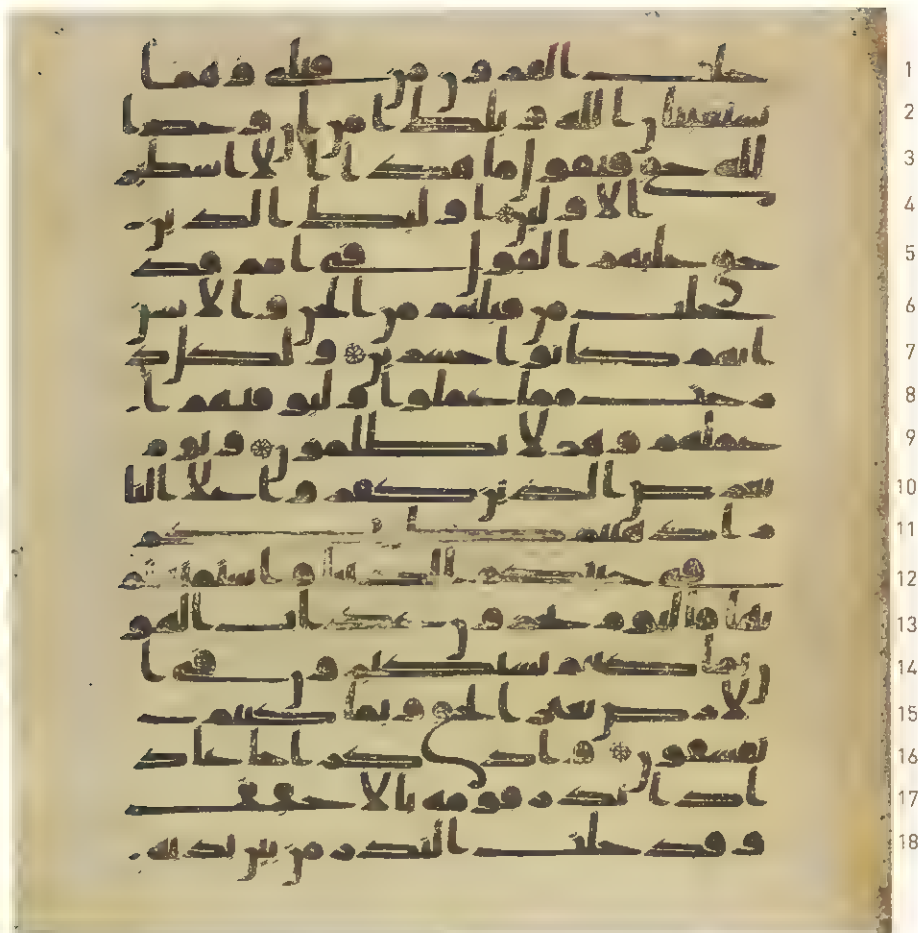 خلت القرون من قبلي وهما 1
يستغيثان الله ويلك امن ان وعد ا 2
لله حق فيقول ما هذا الا اسطير 3
الاولين اوليك الذين 4
حق عليهم القول في امم قد 5
خلت من قبلهم من الجن والانس 6
انهم كانوا خسرين ولكل د 7
رجت مما عملوا وليوفيهم ا 8
عملهم وهم لا يظلمون ويوم 9
يعرض الذين كفروا على النا 10
ر اذهبتم طيبتكم 11
في حياتكم الدنيا واستمتعتم 12
بها فاليوم تجزون عذاب الهو 13
ن بما كنتم تستكبرون في ا 14
لارض بغير الحق وبما كنتم 15
تفسقون واذكر اخا عاد 16
اذ انذر قومه بالاحقف 17
وقد خلت النذر من بين يديه 18